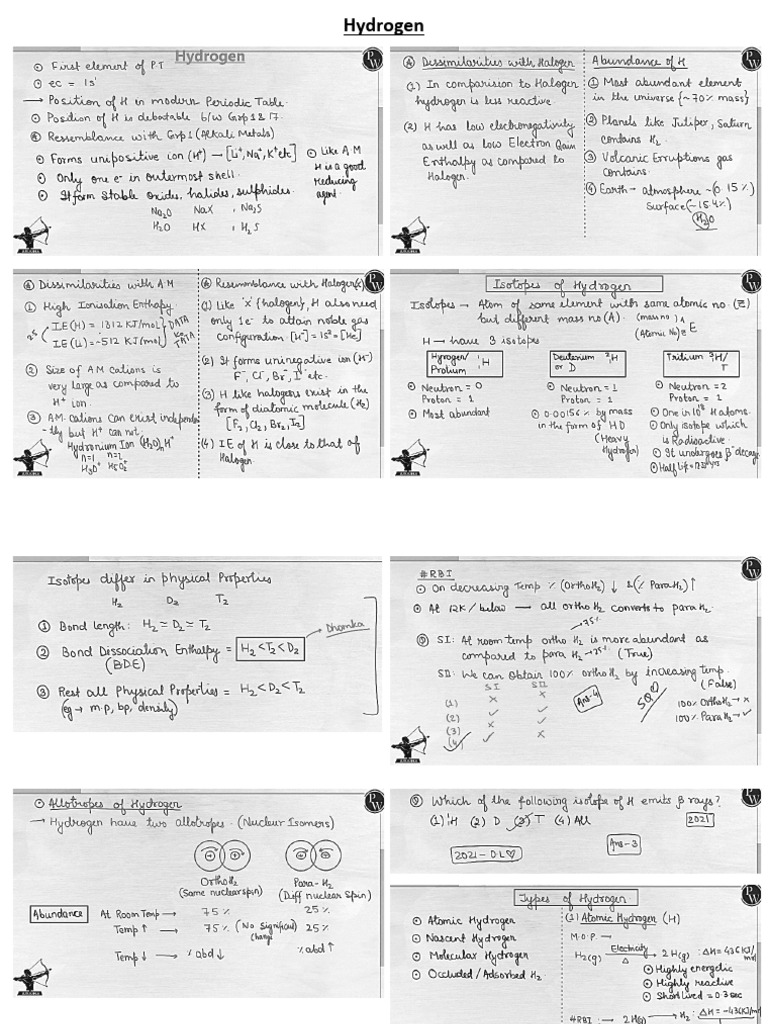 Hydrogen
Hydrogen
First element of P.T
ec = 1s¹
→ Position of H in modern Periodic Table.
Position of H is debatable b/w Grp 1 & 17.
Ressemblance with Grp 1 (Alkali Metals)
Forms unipositive ion (H⁺) → [Li⁺, Na⁺, K⁺ etc]
Only one e⁻ in outermost shell.
It form stable oxides, halides, sulphides.
Na₂O NaX , Na₂S
H₂O HX , H₂S
Like A.M
H is a good
reducing
agent.
Dissimilarities with Halogen
(1) In comparision to Halogen
hydrogen is less reactive.
(2) H has low electronegativity
as well as low Electron Gain
Enthalpy as compared to
Halogen.
Abundance of H
① Most abundant element
in the universe {~70% mass}
② Planels like Jutiper, Saturn
contains H₂
③ Volcanic Erruptions gas
contains.
④ Earth → atmosphere ~(0.15%)
Surface (~15.4%)
H₂O
Dissimilarities with A.M
① High Ionisation Enthapy.
IE(H) = 1312 KJ/mol
IE(Li) = 512 KJ/mol
DATA
② Size of A.M cations is
very large as compared to
H⁺ ion.
③ A.M. cations can exist independen
-tly but H⁺ can not.
Hydronium Ion (H₂O)ₙH⁺
n=1 n=2
H₃O⁺ H₅O₂⁺
Resemomblance with Halogen(X)
(1) Like 'X' {halogen}, H also need
only 1e⁻ to attain noble gas
configuration [H⁻] = 1s² = [He]
(2) It forms uninegative ion (H⁻)
F⁻, Cl⁻, Br⁻, I⁻ etc.
(3) H like halogens exist in the
form of diatomic molecule (H₂)
[F₂, Cl₂, Br₂, I₂]
(4) IE of H is close to that of
Halogen.
Isotopes of Hydrogen
Isotopes → Atom of same element with same atomic no. (Z)
but different mass no (A).
(mass no) A
(Atomic No) Z E
H → have 3 isotopes
Hyrogen/
Protium ¹₁H
Neutron = 0
Proton = 1
Most abundant
Deuterium ²₁H
or D
Neutron = 1
Proton = 1
0.00156% by mass
in the form of HD
(Heavy
Hydrogen)
Tritium ³₁H/
T
Neutron = 2
Proton = 1
One in 10¹⁸ H atoms.
Only isotope which
is Radioactive.
It undergoes β⁻ decay
Isotopes differ in physical Properties
H₂ D₂ T₂
① Bond length: H₂ ≃ D₂ ≃ T₂
② Bond Dissociation Enthalpy = H₂ < T₂ < D₂
(BDE)
Dhamka
③ Rest all Physical Properties = H₂ < D₂ < T₂
(eg → m.p, bp, density)
#RBI
On decreasing Temp % (Ortho H₂) ↓ & (% Para H₂) ↑
At 12K/below → all ortho H₂ converts to para H₂.
→75%
SI: At room temp ortho H₂ is more abundant as
compared to para H₂ →25% (True)
SII: We can obtain 100% ortho H₂ by increasing Temp.
(False)
SI SII
(1) × ×
(2) ✓ ✓
(3) × ✓
(4) ✓ ×
Ans-4
100% Ortho H₂ → ×
100% Para H₂ → ✓
Allotropes of Hydrogen
→ Hydrogen have two allotropes. (Nuclear Isomers)
Ortho H₂
(Same nuclear spin)
Para-H₂
(Diff nuclear Spin)
Abundance
At Room Temp → 75% 25%
Temp ↑ → 75% (No Significant change) 25%
Temp ↓ → % abd ↓ % abd ↑
Which of the following isotope of H emits β rays?
(1) ¹H (2) D (3) T (4) All
2021
Ans-3
2021-D.L♡
Types of Hydrogen
Atomic Hydrogen
Nascent Hydrogen
Molecular Hydrogen
Occluded/Adsorbed H₂
(1) Atomic Hydrogen (H)
M.O.P. →
H₂(g) Electricity Δ → 2H(g) : ΔH = 436 KJ/mol
Highly energetic
Highly reactive
Short lived = 0.3 sec
#RBI : → 2H(g) → H₂ : ΔH = -436 KJ/mol